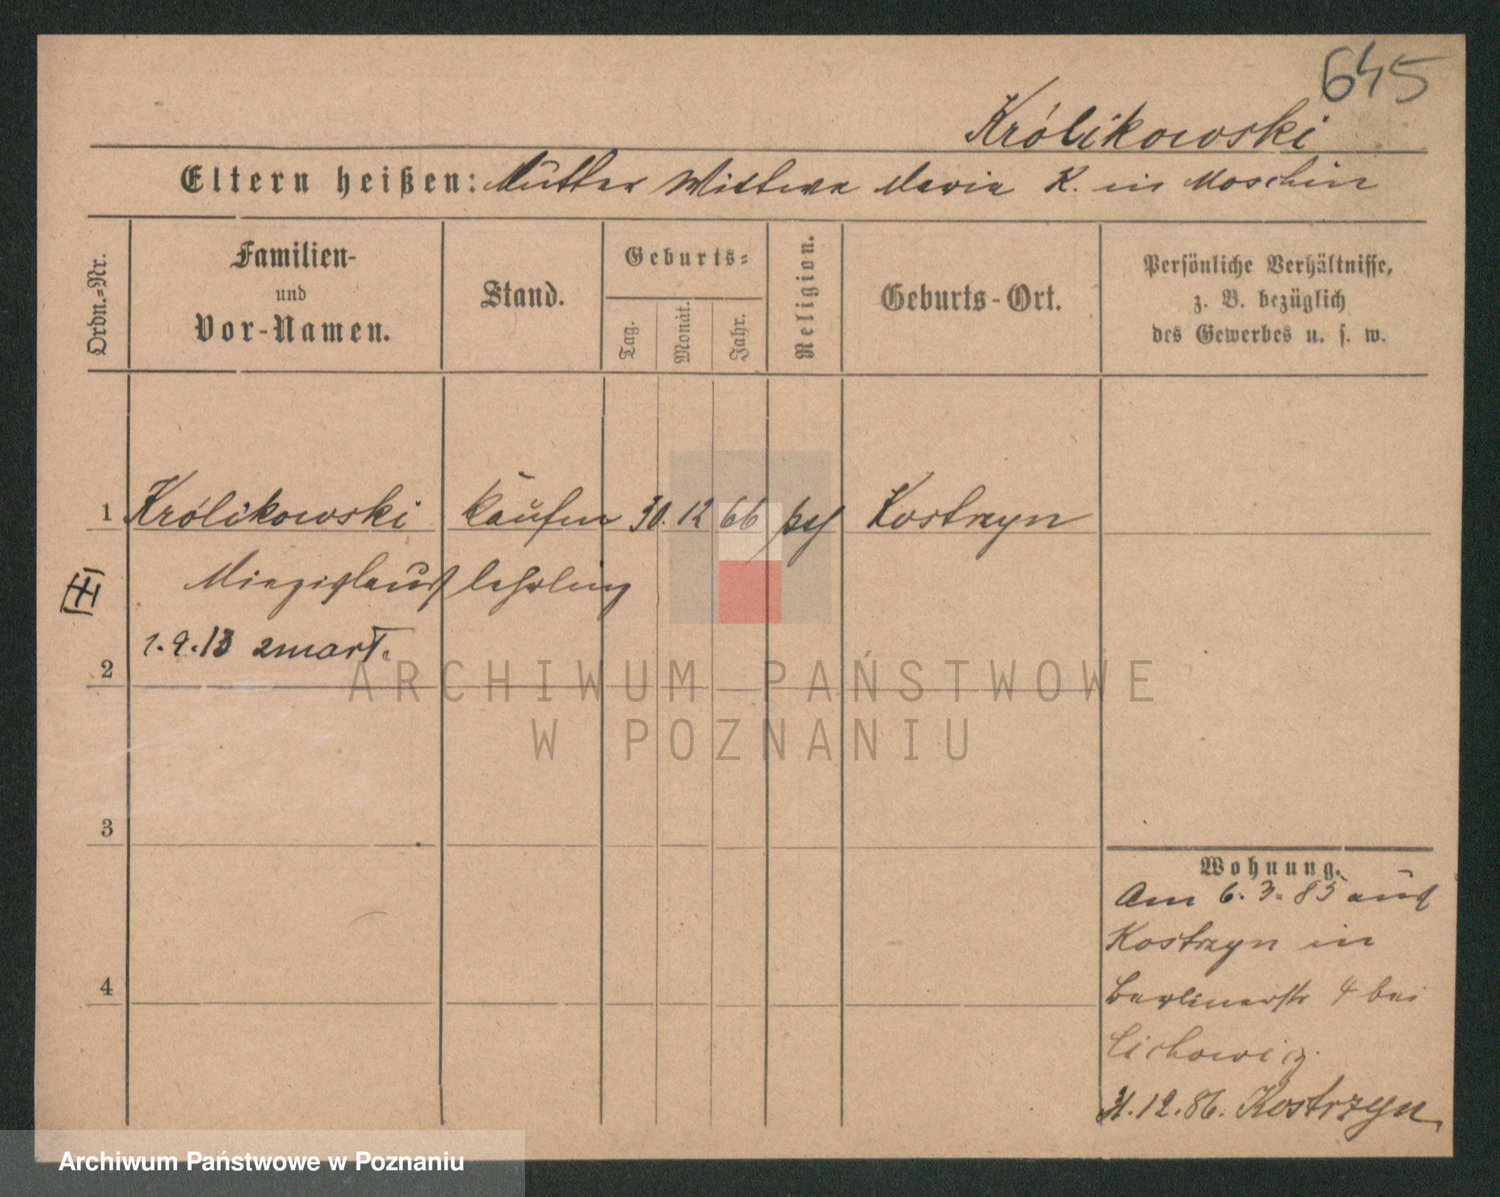 645
Królikowski
Eltern heißen: Mutter Wittwe Maria K. in Moschin
Ordn.-Nr.
Familien-
und
Vor-Namen.
Stand.
Geburts-
Tag.
Monat.
Jahr.
Religion.
Geburts-Ort.
Persönliche Verhältnisse,
z. B. bezüglich
des Gewerbes u. s. w.
1 Królikowski Kaufm 30. 12 66 Kostrzyn
Miezislaus lehrling
1.9.13 zmarł.
2
3
4
Wohnung.
Am 6.3.85 aus
Kostrzyn in
Berlinerstr 4 bei
Cichowicz.
31.12.86. Kostrzyn
ARCHIWUM PAŃSTWOWE
W POZNANIU
Archiwum Państwowe w Poznaniu